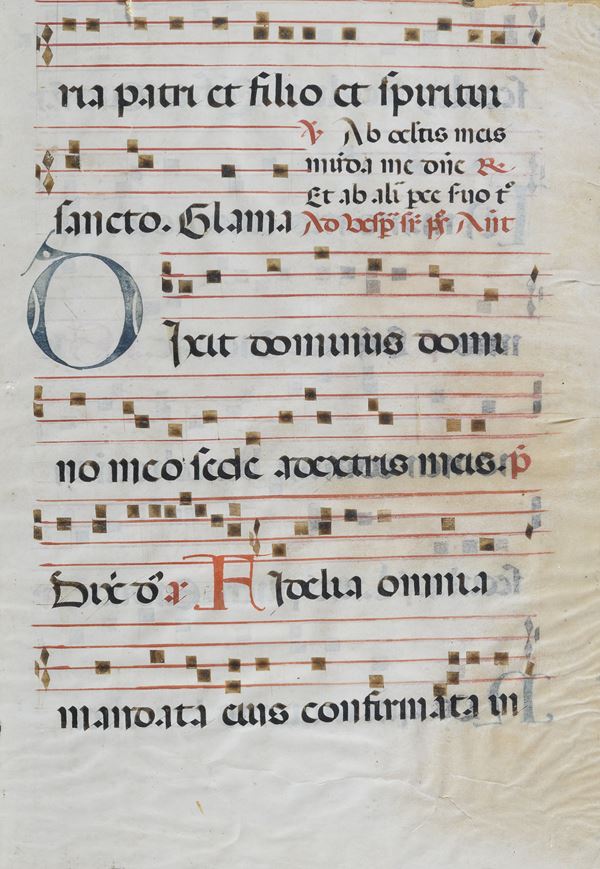 ria patri et filio et spiritui
℣ Ab occltis meis
mūda me dñe ℟
Et ab ali pce suo t
sancto. Glama
Ad vesp̄ Añt
Dixit dominus domi
no meo sede adextris meis. p̄
Dix̄ dō a Fidelia omnia
mandata eius confirmata in